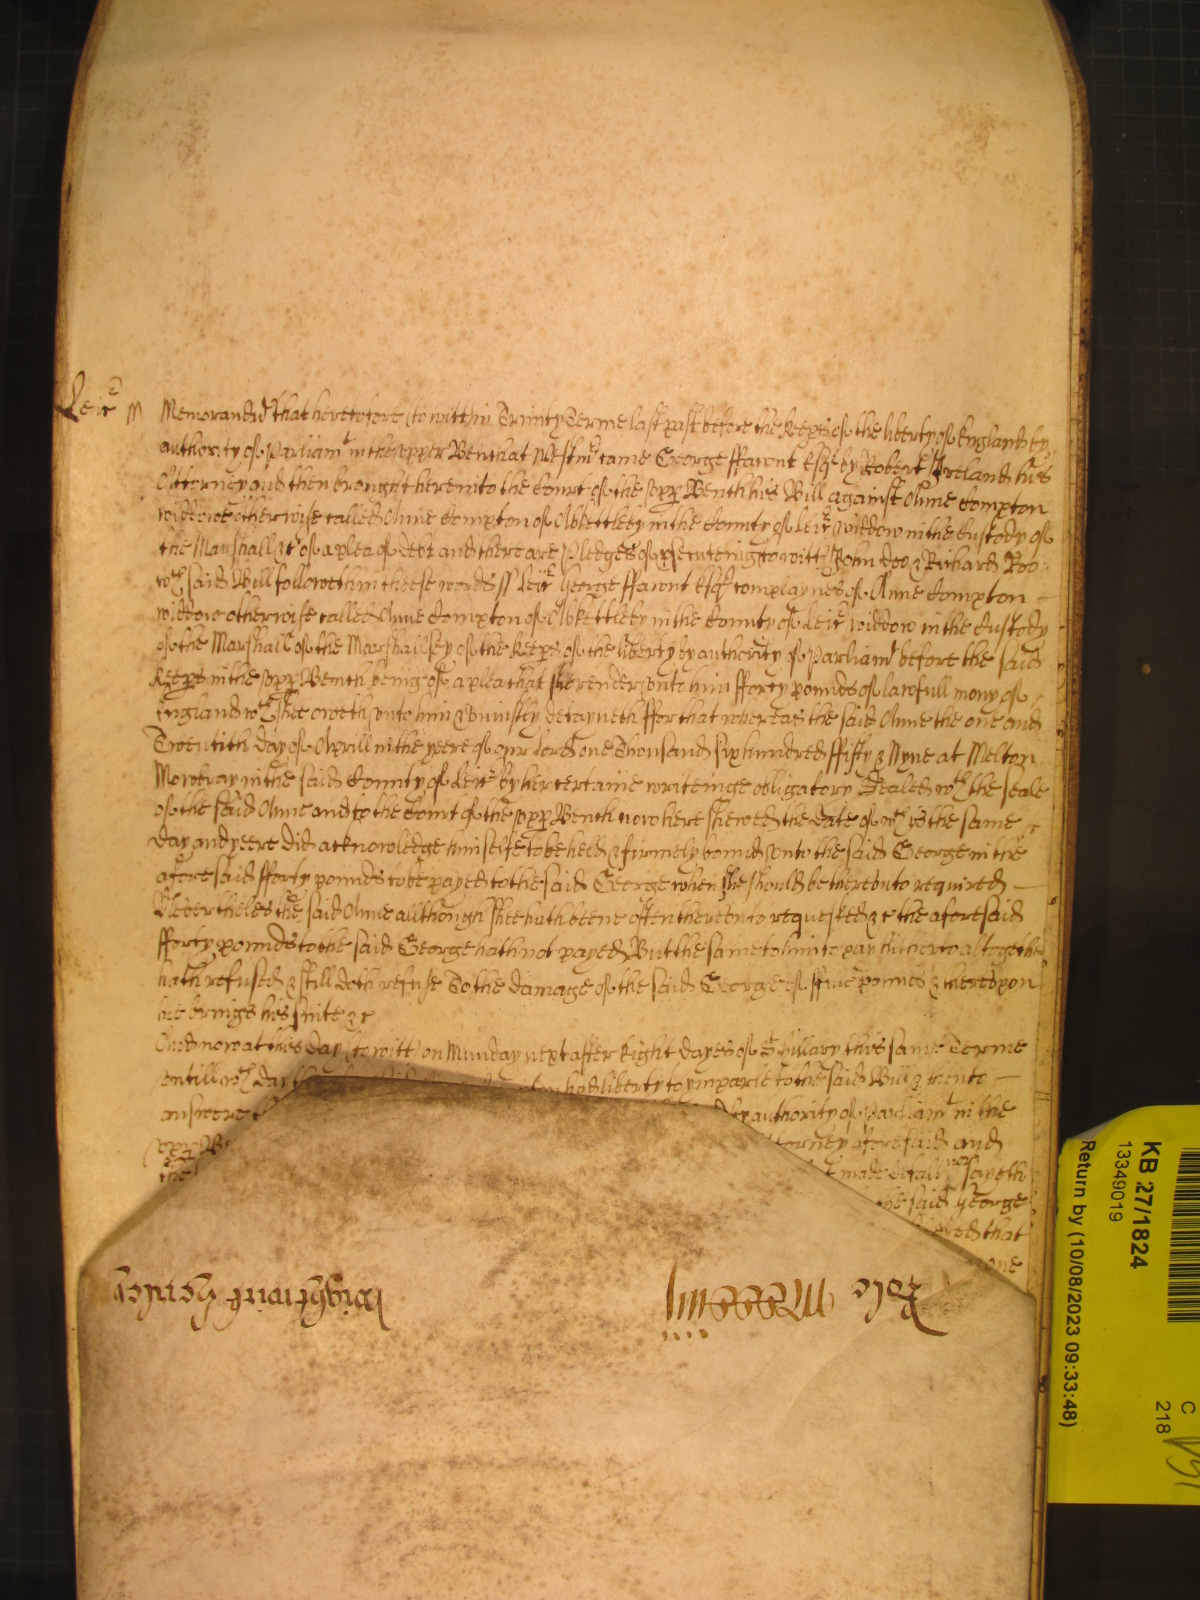 Leic̃ M Memorand̃ that heretofore (to witt) in Trinity Terme last past before the Keep̃s of the liberty of England by
authority of Parliamt in the upper Bench at Westm̃ came George ffarent Esq̃ by Robert Ireland his
Attorney and then brought here into the Court of the upp̃ Bench his Bill against Anne Compton
widdow otherwise called Anne Compton of Abkettleby in the County of Leic̃ widdow in the Custody of
the Marshall &c of a plea of debt and there are Pledges of p̱secuteing to witt John Doo & Richard Roo
wch said Bill followeth in theese words ss Leic̃ George ffarent Esq̃ complaynes of Anne Compton
widdow otherwise called Anne Compton of Abkettleby in the County of Leic̃ widdow in the Custody
of the Marshall of the Marshallsey of the Keep̃s of the liberty by authority of Parliamt before the said
Keep̃s in the upp̃ Bench being of a plea that shee render unto him fforty pounds of lawfull mony of
England wch shee oweth unto him & uniustly detayneth ffor that whereas the said Anne the one and
Twentith day of Aprill in the yeere of our Lord one Thousand six hundred ffifty & Nyne at Melton
Mowbray in the said County of Leic̃ by her certaine writeinge obligatory Sealed wth the seale
of the said Anne and to the Court of the upp̃ Bench now here shewed the date of wch is the same
day and yeere did acknowledge himselfe to be held & firmely bound unto the said George in the
aforesaid fforty pounds to be payed to the said George when she should be thereunto required
Neverthelesthe said Anne allthough shee hath beene often thereunto requested &c the aforesaid
fforty pounds to the said George hath not payed But the same to him to pay hitherto altogether
hath refused & still doth refuse To the damage of the said George of ffive pounds & thereupon
hee brings his suite &c
And now at this day (to witt) on Munday next after Eight dayes of St Hillary this same Terme
untill wch day the had liberty to imparle to the said Bill & then to
answere th by authority of Parliamt in the
upp̃ B Attorney aforesaid and
the made default nor sayeth
the said George
that
one
Rolo M
KB 27/1824
13349019
Return by (10/08/2023 09:33:48)
C
218